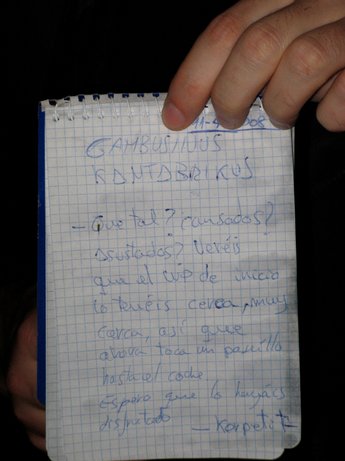 GAMBUSINUS
KANTABRIKUS
- Que tal? Cansados?
Asustados? Veréis
que el WP de inicio
lo tenéis cerca, muy
cerca, así que
ahora toca un paseillo
hasta el coche
Espero que lo hayáis
disfrutado
- Korpetit